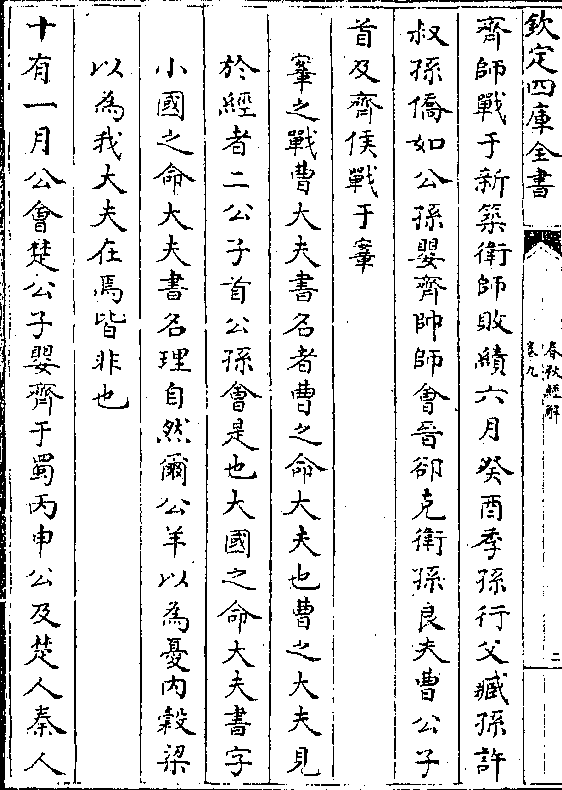 欽定四庫全書
春秋經解
卷九
二
齊師戰于新築衛師敗績六月癸酉季孫行父臧孫許
叔孫僑如公孫嬰齊帥師會晉郤克衛孫良夫曹公子
首及齊侯戰于鞌
鞌之戰曹大夫書名者曹之命大夫也曹之大夫見
於經者二公子首公孫會是也大國之命大夫書字
小國之命大夫書名理自然爾公羊以為憂內穀梁
以為我大夫在焉皆非也
十有一月公會楚公子嬰齊于蜀丙申公及楚人秦人